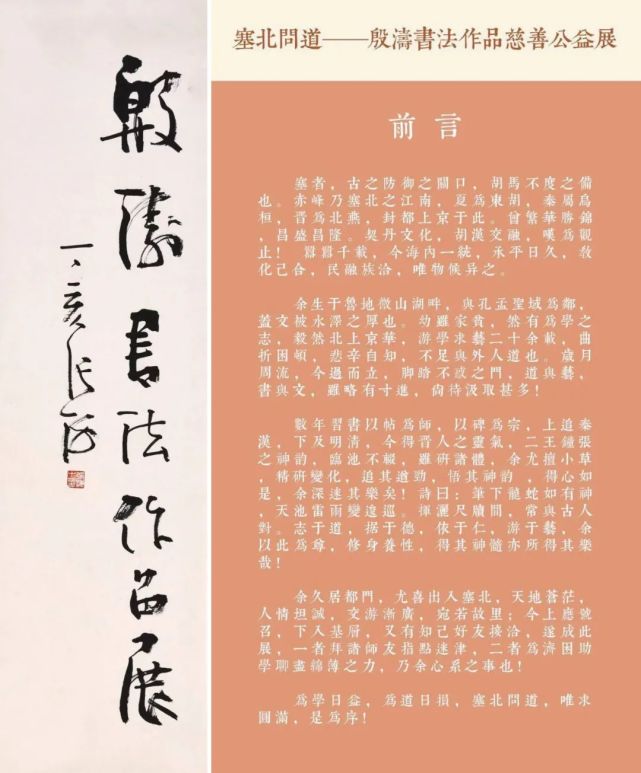 殷濤書法作品展
塞北問道——殷濤書法作品慈善公益展
前言
塞者，古之防御之關口，胡馬不度之備
也。赤峰乃塞北之江南，夏爲東胡，秦屬烏
桓，晋爲北燕，封都上京于此。曾繁華勝錦
，昌盛昌隆。契丹文化，胡漢交融，嘆爲觀
止！ 羇羇千載，今海内一統，承平日久，教
化己合，民融族洽，唯物候异之。
余生于魯地微山湖畔，與孔孟聖域爲鄰，
蓋文被水澤之厚也。幼雖家貧，然有爲學之
志，毅然北上京華，游學求藝二十余載，曲
折困頓，悲辛自知，不足與外人道也。歲月
周流，今過而立，脚踏不或之門，道與藝，
書與文，雖略有寸進，尚待汲取甚多！
數年習書以帖爲師，以碑爲宗，上追秦
漢，下及明清，今得晋人之靈氣，二王鐘張
之神韵，臨池不輟，雖研諸體，余尤擅小草
，精研變化，追其遒勁，悟其神韵 ，得心如
是，余深迷其樂矣！詩曰：筆下龍蛇如有神
，天池雷雨變逡巡。揮灑尺牘間，常與古人
對。志于道，据于德，依于仁，游于藝，余
以此爲尊，修身養性，得其神髓亦所得其樂
哉！
余久居都門，尤喜出入塞北，天地蒼茫，
人情坦誠，交游漸廣，宛若故里；今上應號
召，下入基層，又有知己好友接洽，遂成此
展，一者拜諸師友指點迷津，二者爲濟困助
學聊盡綿薄之力，乃余心系之事也！
爲學日益，爲道日損，塞北問道，唯求
圓滿，是爲序！